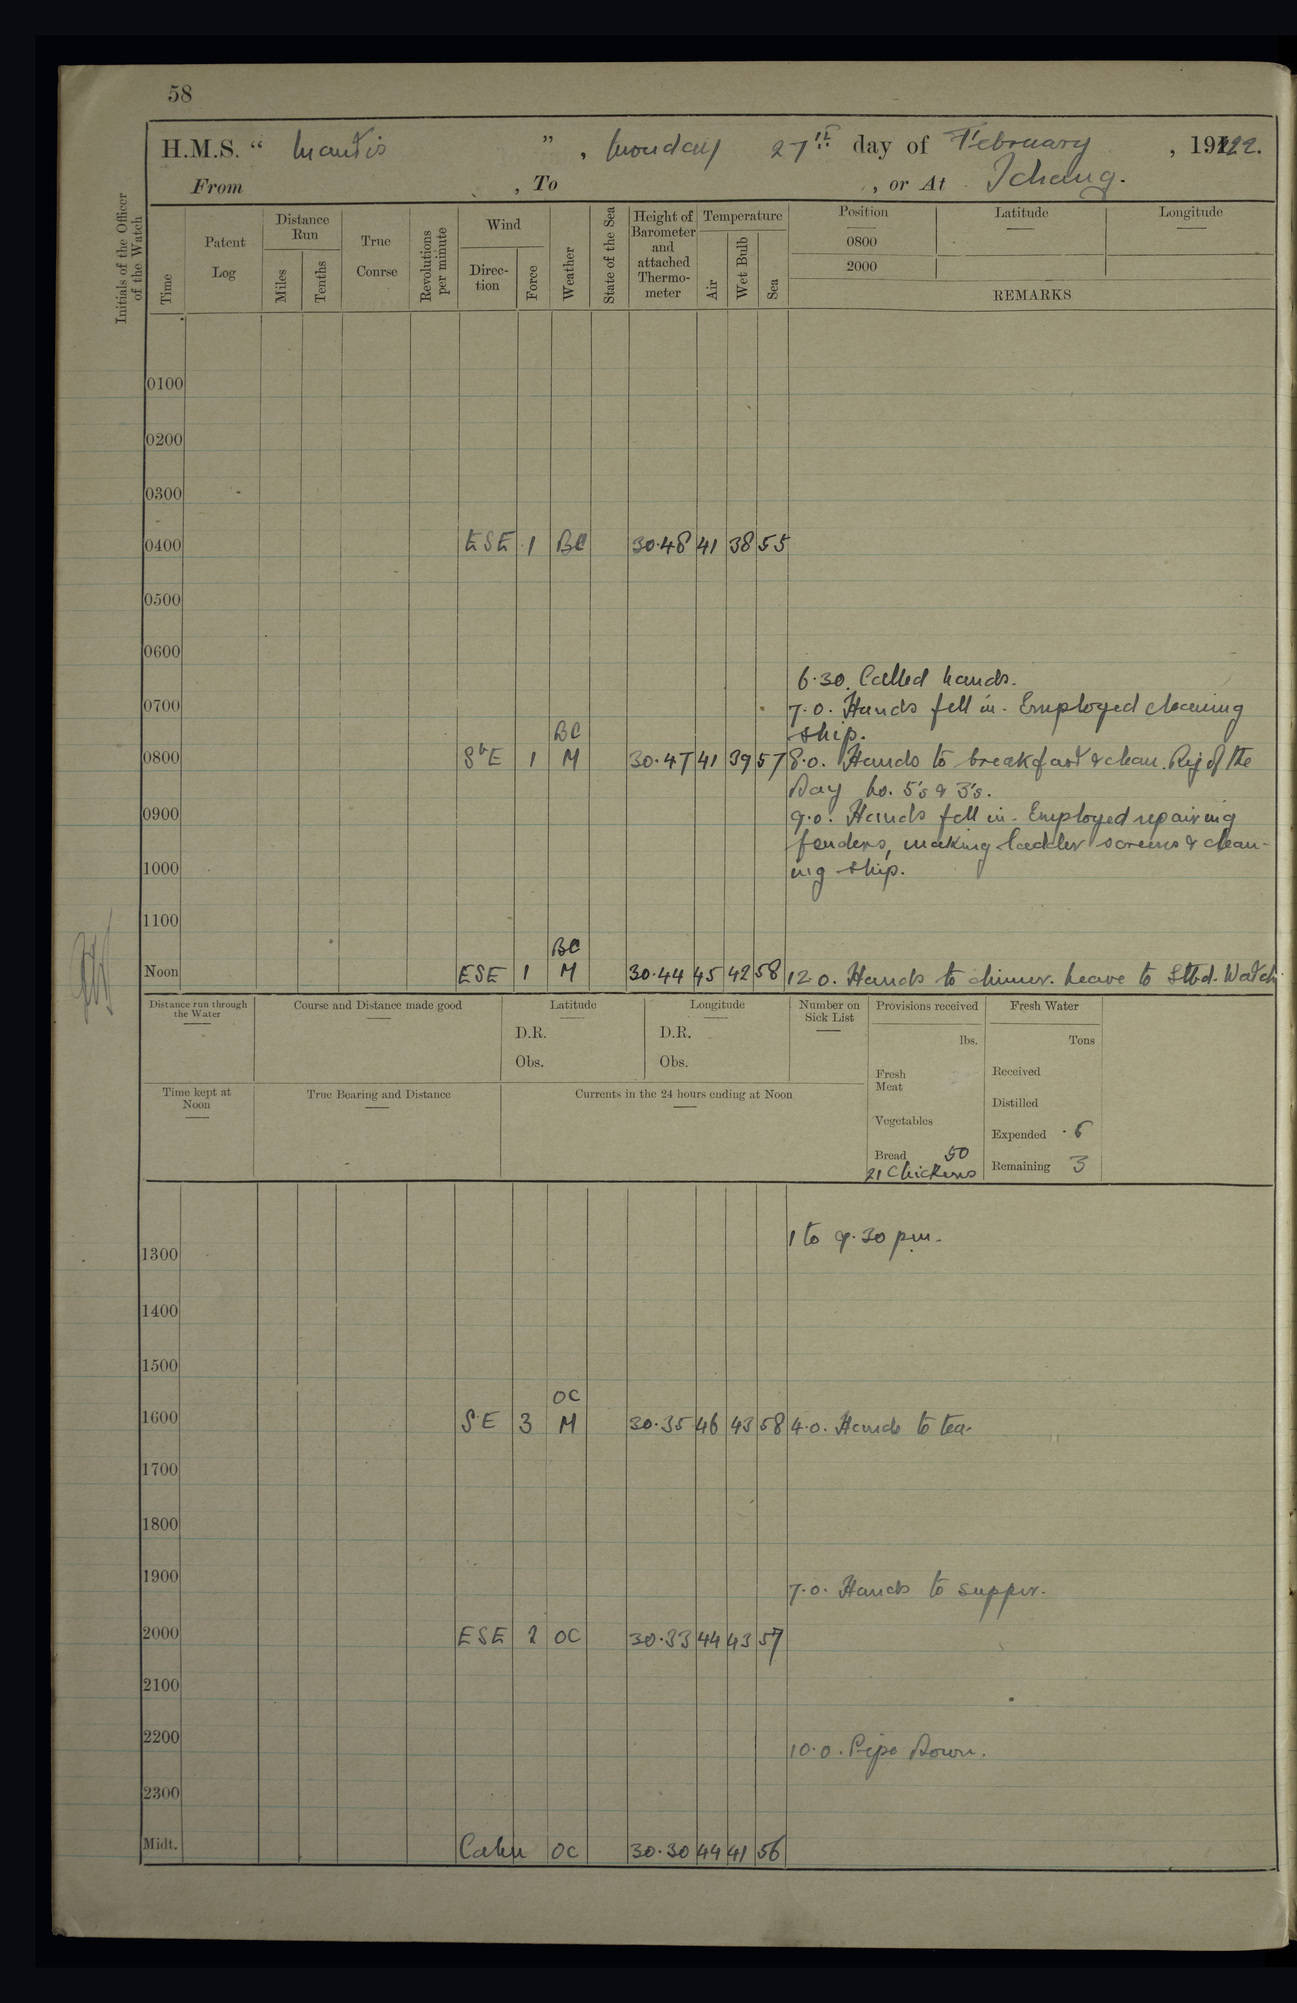 58
H.M.S. “ Mantis ” , Monday 27th day of February , 1922.
From , To , or At Ichang.
Initials of the Officer of the Watch
Time
Patent Log
Distance Run
Miles
Tenths
True Course
Revolutions per minute
Wind
Direc-tion
Force
Weather
State of the Sea
Height of Barometer and attached Thermo-meter
Temperature
Air
Wet Bulb
Sea
Position
Latitude
Longitude
0800
2000
REMARKS
0100
0200
0300
0400 ESE 1 BC 30.48 41 38 55
0500
0600
6.30. Called hands.
0700 7.0. Hands fell in. Employed cleaning
BC ship.
0800 SbE 1 M 30.47 41 39 57 8.0. Hands to breakfast & clean. Rig of the
Day No. 5's & 3's.
0900 9.0. Hands fell in. Employed repairing
fenders, making ladder screens & clean-
1000 ing ship.
1100
BC
Noon ESE 1 M 30.44 45 42 58 12.0. Hands to dinner. Leave to Stbd. Watch
Distance run through the Water
Course and Distance made good
Latitude
D.R.
Obs.
Longitude
D.R.
Obs.
Number on Sick List
Provisions received
lbs.
Fresh Meat
Vegetables
Bread 50
21 Chickens
Fresh Water
Tons
Received
Distilled
Expended .5
Remaining 3
Time kept at Noon
True Bearing and Distance
Currents in the 24 hours ending at Noon
1 to 9.30 pm.
1300
1400
1500
OC
1600 SE 3 M 30.35 46 43 58 4.0. Hands to tea.
1700
1800
1900 7.0. Hands to supper.
2000 ESE 2 OC 30.33 44 43 57
2100
2200 10.0. Pipe Down.
2300
Midt. Calm OC 30.30 44 41 56